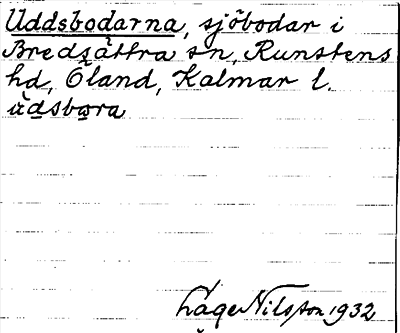 Uddsbodarna, sjöbodar i
Bredsättra sn, Runstens
hd, Öland, Kalmar l.
Lage Nilsson 1932